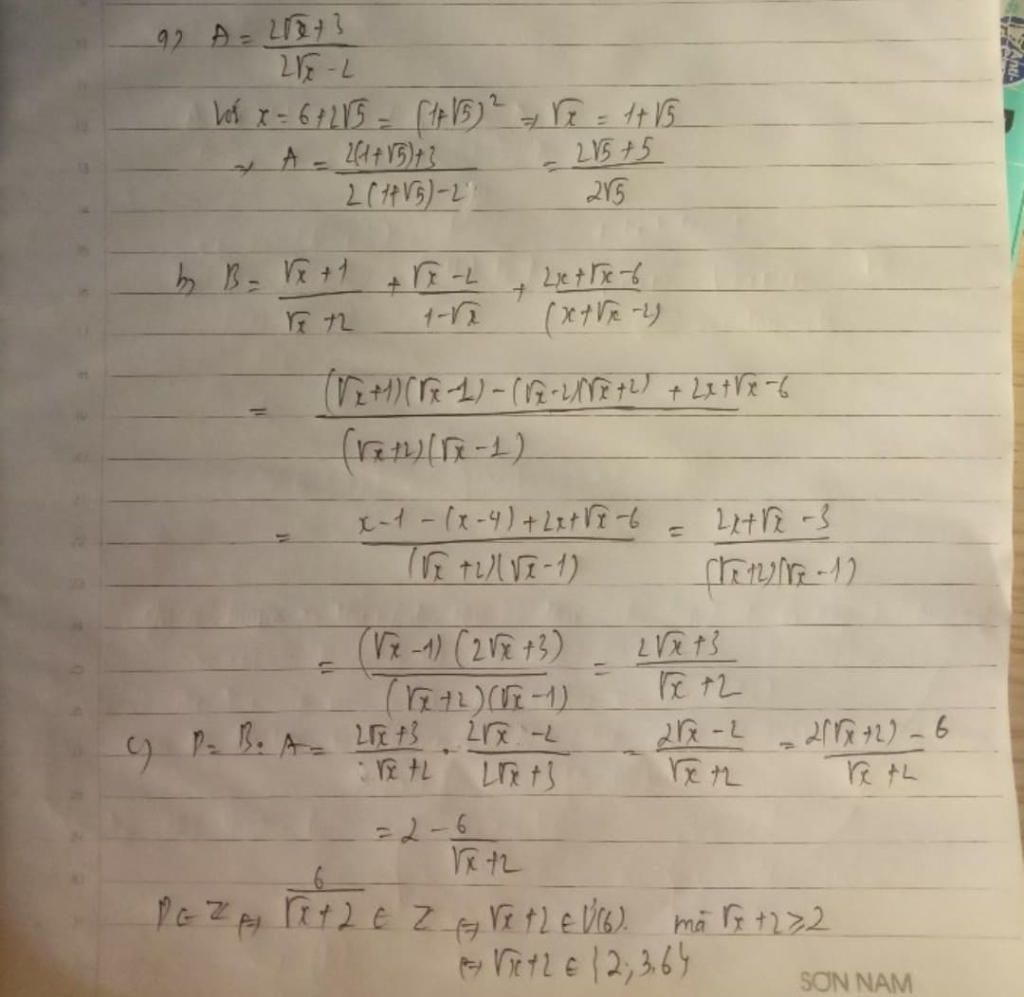 a) A = (2√x + 3)/(2√x - 2)
Với x = 6 + 2√5 = (1+√5)² ⇒ √x = 1+√5
⇒ A = (2(1+√5)+3)/(2(1+√5)-2) = (2√5 + 5)/(2√5)
b) B = (√x + 1)/(√x + 2) + (√x - 2)/(1-√x) + (2x+√x-6)/(x+√x-2)
= ((√x+1)(√x-1) - (√x-2)(√x+2) + 2x+√x-6)/((√x+2)(√x-1))
= (x-1-(x-4)+2x+√x-6)/((√x+2)(√x-1)) = (2x+√x-3)/((√x+2)(√x-1))
= ((√x-1)(2√x+3))/((√x+2)(√x-1)) = (2√x+3)/(√x+2)
c) P = B : A = (2√x+3)/(√x+2) · (2√x-2)/(2√x+3) = (2√x-2)/(√x+2) = (2(√x+2)-6)/(√x+2)
= 2 - 6/(√x+2)
P ∈ Z ⇔ 6/(√x+2) ∈ Z ⇔ √x+2 ∈ Ư(6). mà √x+2 ≥ 2
⇔ √x+2 ∈ {2;3.6}
SƠN NAM